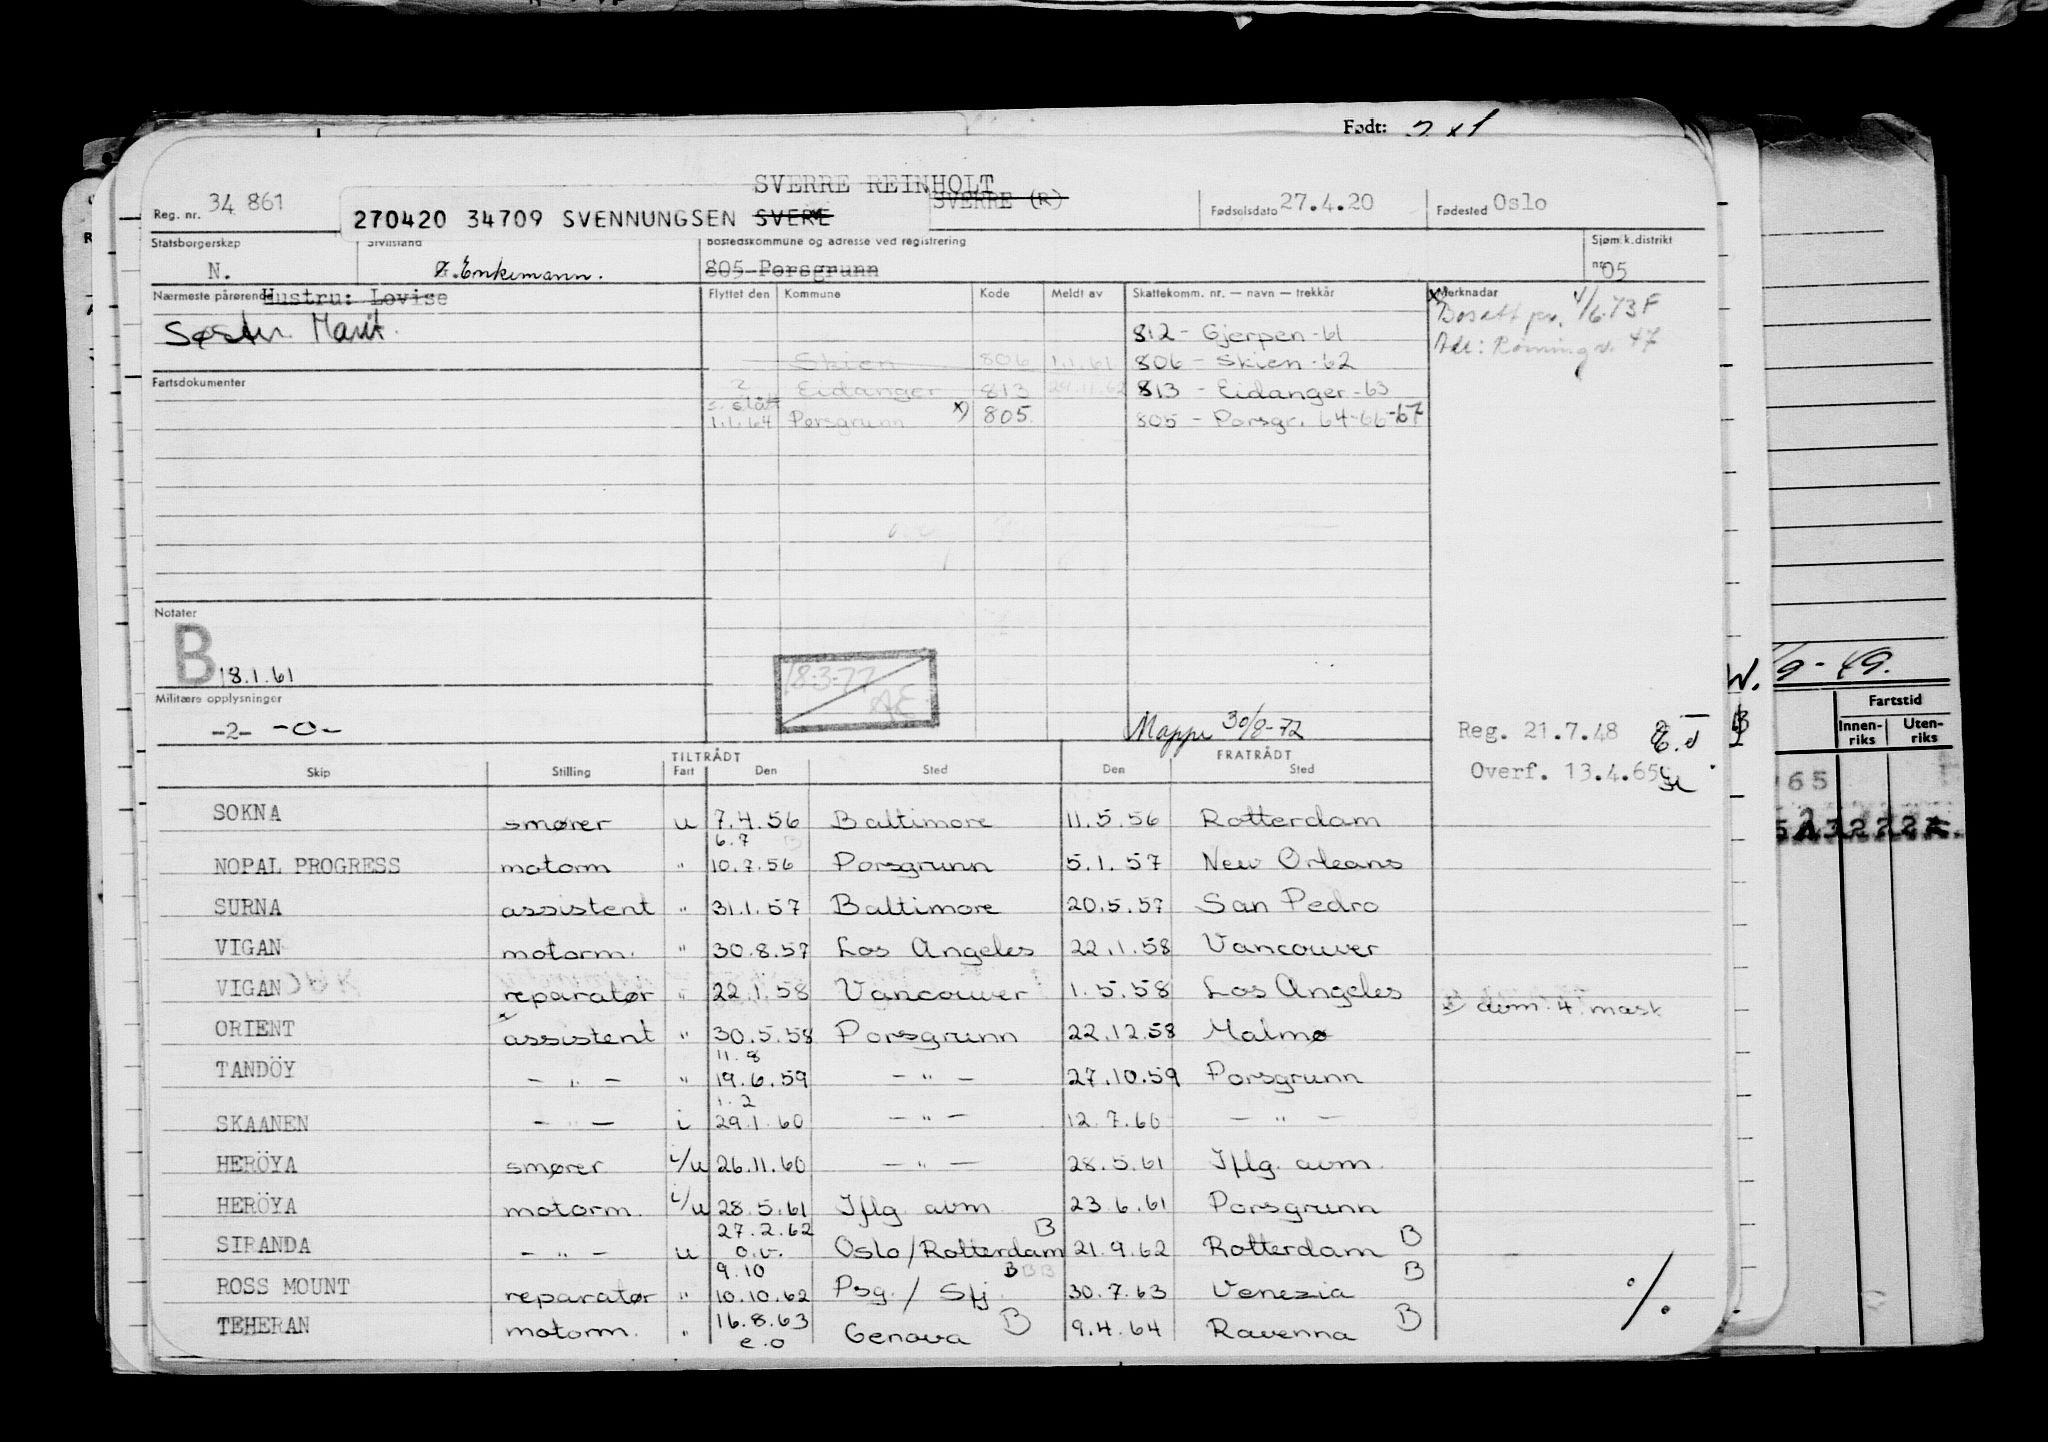 Født:
SVERRE REINHOLT
SVERRE (R)
Reg. nr. 34 861
270420 34709 SVENNUNGSEN SVERE
Fødselsdato 27.4.20
Fødested Oslo
Statsborgerskap
N.
Sivilstand
Enkemann.
Bostedskommune og adresse ved registrering
805 Porsgrunn
Sjøm.k.distrikt
nr. 05
Nærmeste pårørende Hustru: Lovise
Søster Marit.
Flyttet den Kommune Kode Meldt av Skattekomm. nr. — navn — trekkår Merknadar
Bosatt pr. 4/6.73 F
812 - Gjerpen - 61
Adr: Rømningv. 47
Skien 806 1.1.61 806 - Skien - 62
Fartsdokumenter
? Eidanger 813 29.11.62 813 - Eidanger - 63
s. slått
1.1.64 Porsgrunn x) 805. 805 - Porsgr. 64-66-67
Notater
B 18.1.61
18-3-77
AE
Militære opplysninger
-2- -0-
Mappe 30/8-72
Reg. 21.7.48
Overf. 13.4.65
TILTRÅDT FRATRÅDT
Skip Stilling Fart Den Sted Den Sted
SOKNA smører u 7.4.56 Baltimore 11.5.56 Rotterdam
6.7
NOPAL PROGRESS motorm " 10.7.56 Porsgrunn 5.1.57 New Orleans
SURNA assistent " 31.1.57 Baltimore 20.5.57 San Pedro
VIGAN motorm. " 30.8.57 Los Angeles 22.1.58 Vancouver
VIGAN reparatør " 22.1.58 Vancouver 1.5.58 Los Angeles
x) avm. 4. mask
ORIENT assistent " 30.5.58 Porsgrunn 22.12.58 Malmø
11.8
TANDÖY - " - " 19.6.59 - " - 27.10.59 Porsgrunn
1.2
SKAANEN - " - i 29.1.60 - " - 12.7.60 - " -
HERÖYA smører i/u 26.11.60 - " - 28.5.61 Iflg. avm.
HERÖYA motorm. i/u 28.5.61 Iflg avm 23.6.61 Porsgrunn
27.2.62 B B
SIRANDA - " - u o.v. Oslo/Rotterdam 21.9.62 Rotterdam
9.10 B B B B
ROSS MOUNT reparatør " 10.10.62 Psg. / Sfj. 30.7.63 Venezia
16.8.63 B B
TEHERAN motorm. " e.o Genova 9.4.64 Ravenna
./.
W.
9-49.
Fartstid
Innen-riks Uten-riks
65